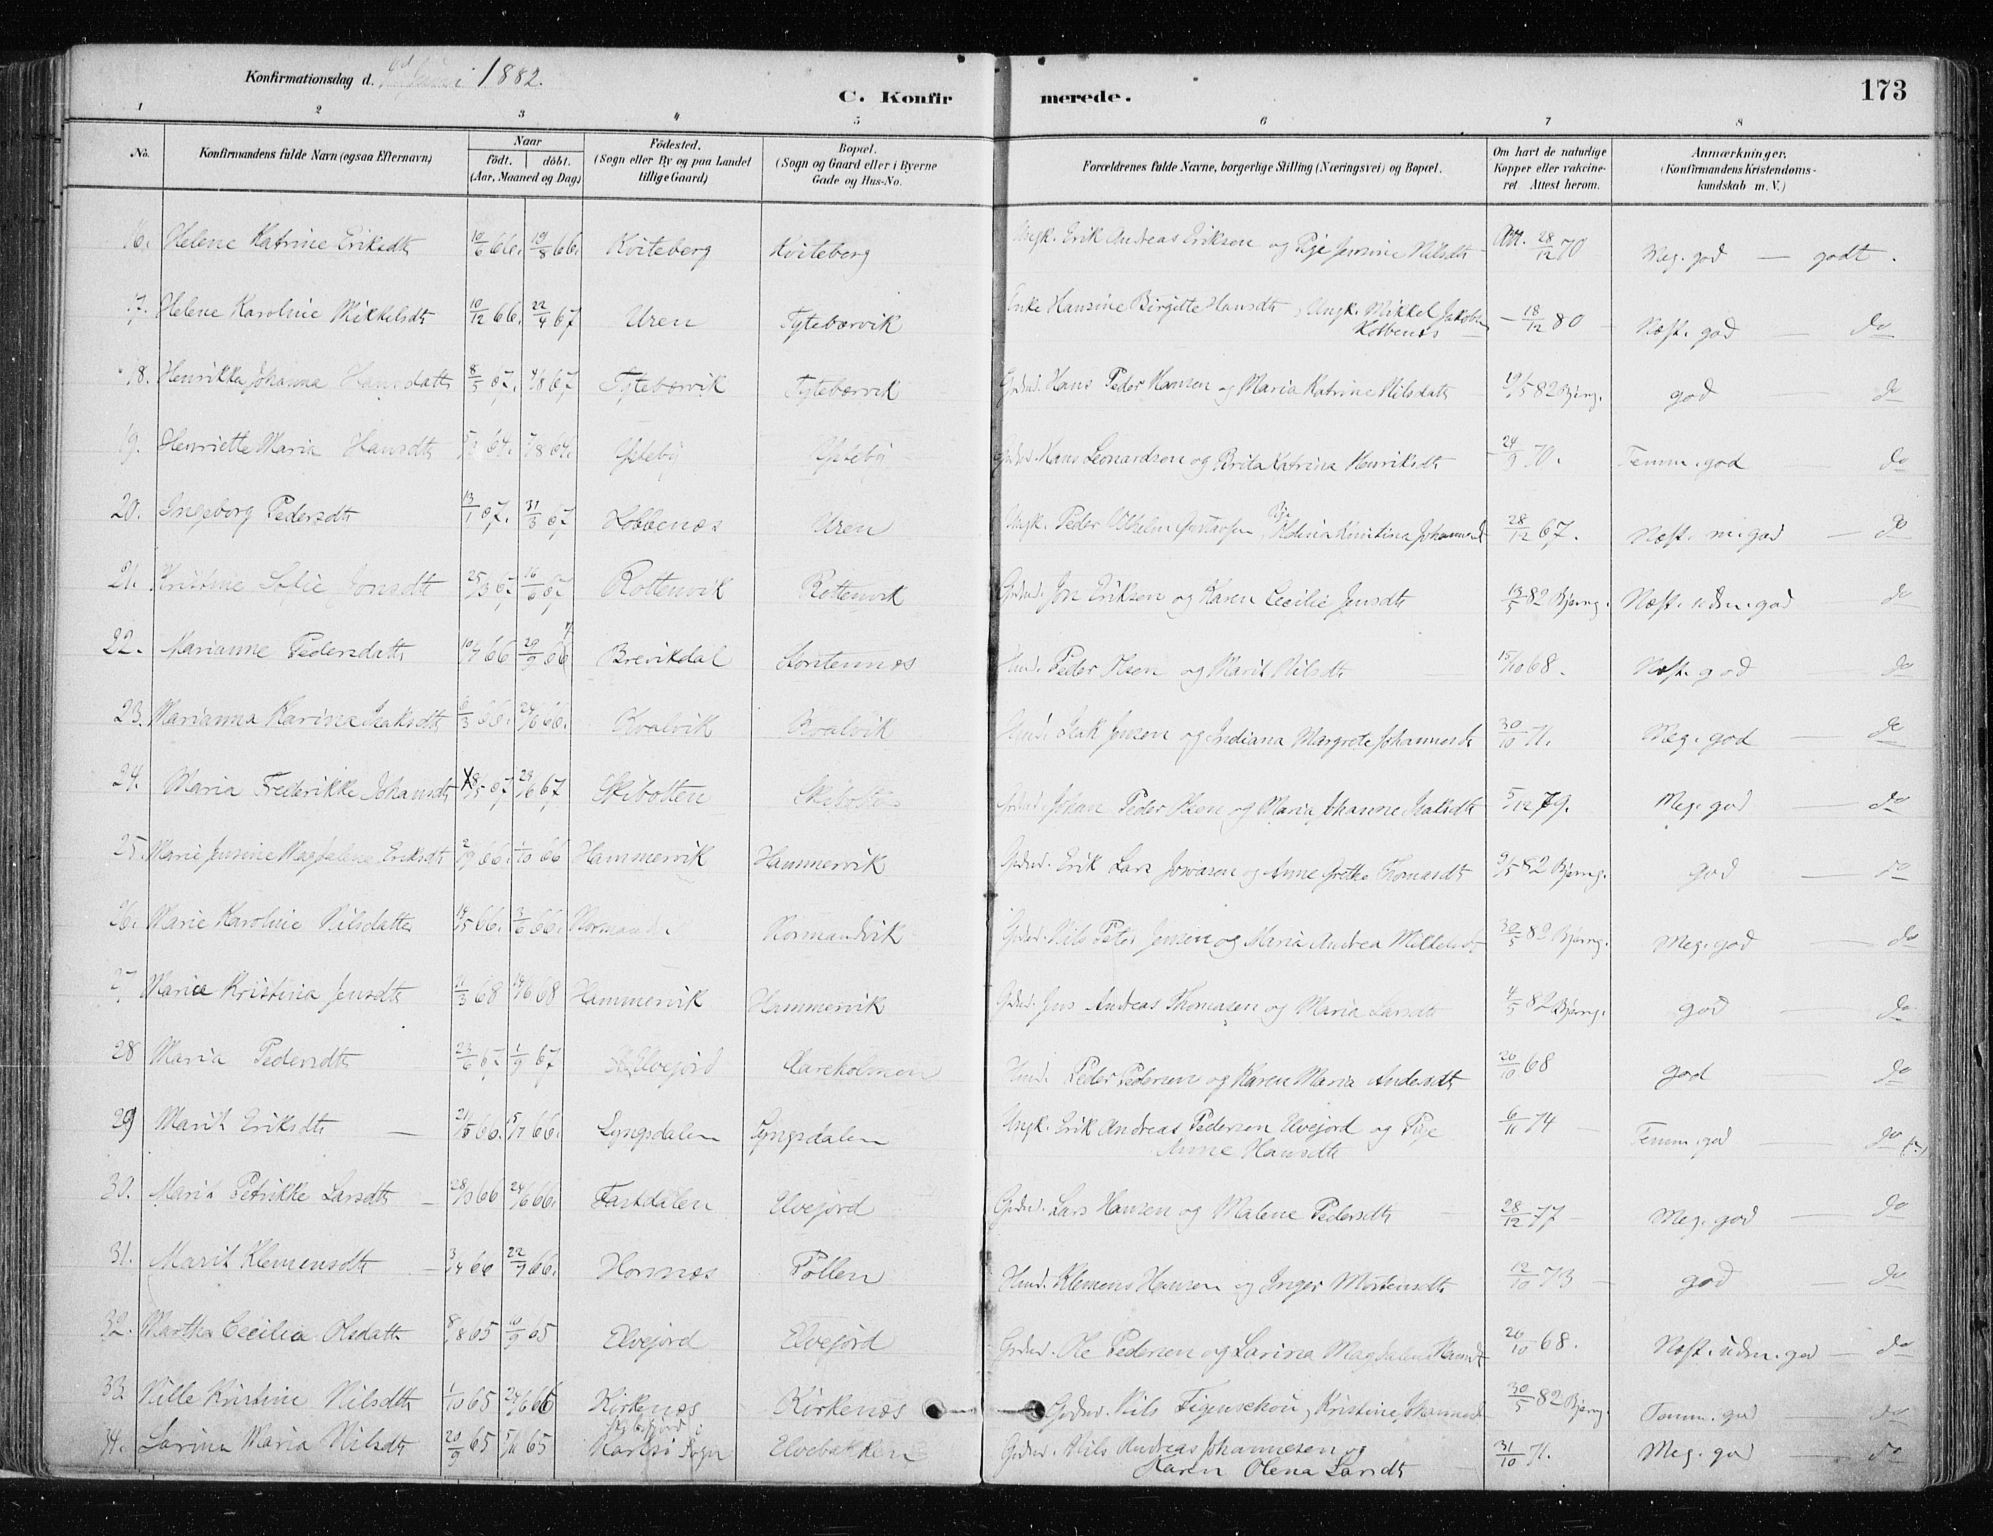 Konfirmationsdag d. Juni 1882.
C. Konfirmerede.
173
1 2 3 4 5 6 7 8
No. Konfirmandens fulde Navn (ogsaa Efternavn) Naar födt. döbt. (Aar, Maaned og Dag) Födested. (Sogn eller By og paa Landet tillige Gaard) Bopæl. (Sogn og Gaard eller i Byerne Gade og Hus-No. Forældrenes fulde Navne, borgerlige Stilling (Næringsvei) og Bopæl. Om havt de naturlige Kopper eller vakcineret Attest herom. Anmærkninger. (Konfirmandens Kristendomskundskab m. V.)
16. Helene Katrine Eriksdt 10/6 66. 19/8 66. Kviteberg Kviteberg Ungk. Erik Andreas Eriksen og Pige Jensine Nilsdt Att. 28/12 70 Meg. god — godt.
17. Helene Karoline Mikkelsdt 10/12 66. 22/4 67 Uren Tytebærvik Enke Hansine Birgitte Hansdt, Ungk. Mikkel Jakobsen Kobbenes 18/12 80 Næst. god — do
18. Henrikka Johanna Hansdatt 8/5 67. 4/8 67 Tytebærvik Tytebærvik Grdmd. Hans Peder Hansen og Maria Katrine Nilsdatt 19/5 82 Bjerng. god — do
19. Henriette Maria Hansdt 64. 7/8 64. Grdmd. Hans Leonardsen og Berita Katrina Henriksdt 24/9 70. Temm. god — do
20. Ingeborg Pedersdt 13/1 67. 31/3 67 Kobbenæs Uren Ungk. Peder Vilhelm Gustavsen, Pige Oldine Kristina Johannesd 28/12 67. Næst. m. god — do
21. Kristine Sofie Jonsdt 25/3 67 16/6 67 Rottenvik Rottenvik Grdmd. Jon Eriksen og Karen Cecilie Jensdt 13/5 82 Bjerng. Næst. udm. god — do
22. Marianne Pedersdatt 10/7 66 29/9 66 Brevikdal Stortennæs Husmd. Peder Olsen og Marit Nilsdt 15/10 68. Næst. god — do
23. Marianna Karina Isaksdt 6/3 66. 24/6 66. Kvalvik Kvalvik Husmd. Isak Jensen og Indiana Margrete Johannesdt 30/10 71. Meg. god — do
24. Maria Frederikke Johansdt 18/5 67 23/6 67 Skibotten Skibotten Grdmd. Johan Peder Olsen og Maria Johanne Isaksdt 5/12 79. Meg. god — do
25. Marie Jensine Magdalena Eriksdt 2/9 66. 1/10 66 Hammervik Hammervik Grdmd. Erik Lars Jonasen og Anne Grethe Thomasdt 9/5 82 Bjerng. god — do
26. Marie Karoline Nilsdatt 14/5 66. 3/6 66. Normandv Normandvik Grdmd. Nils Peter Jensen og Maria Andrea Mikkelsdt 30/5 82 Bjerng. Meg. god — do
27. Maria Kristina Jensdt 11/3 68 14/6 68 Hammervik Hammervik Grdmd. Jens Andreas Thomasen og Maria Larsdt 4/5 82 Bjerng. god — do
28 Maria Pedersdt 23/6 67. 1/9 67 Elvejord Kareholmen Husmd. Peder Pedersen og Karen Maria Andersdt 20/10 68 god — do
29 Marit Eriksdt 66. 15/7 66. Lyngsdalen Lyngsdalen Ungk. Erik Andreas Pedersen Elvejord og Pige Anne Hansdt 6/11 74 Temm. god — do
30. Marit Petrikke Larsdt 28/3 66 24/6 66. Fastdalen Elvejord Grdmd. Lars Hansen og Malene Pedersdt 28/12 77 Meg. god — do
31. Marit Klemensdt 3/4 66 22/7 66. Hornnæs Pollen Husmd. Klemens Hansen og Inger Mortensdt 12/10 73 god — do
32. Martha Cecilia Olsdatt 8/8 65 10/9 65 Elvejord Elvejord Grdmd. Ole Pedersen og Larina Magdalena Hansdt 20/10 68. Næst. udm. god — do
33. Nille Kristine Nilsdt 1/10 65 24/6 66 Kirkenæs Kirkenæs Grdmd. Nils Figenschou, Kristine Johannesd 30/5 82 Bjerng. Temm. god — do
34. Larina Maria Nilsdt 20/9 65 65 Karlsö Sogn Elvebakken Grdmd. Nils Andreas Johannesen og Karen Olena Larsdt 31/10 71. Meg. god — do